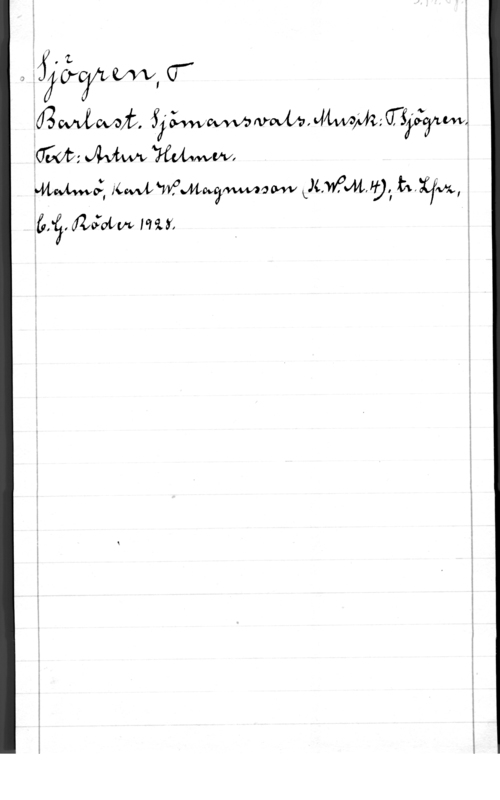 Sjögren, T
Barlast. Sjömansvals. Musik: T. Sjögren.
Text: Artur Helmer.
Malmö, Karl W. Magnusson (K.W.M.4); tr. Lpz,
C.G. Röder 1928.